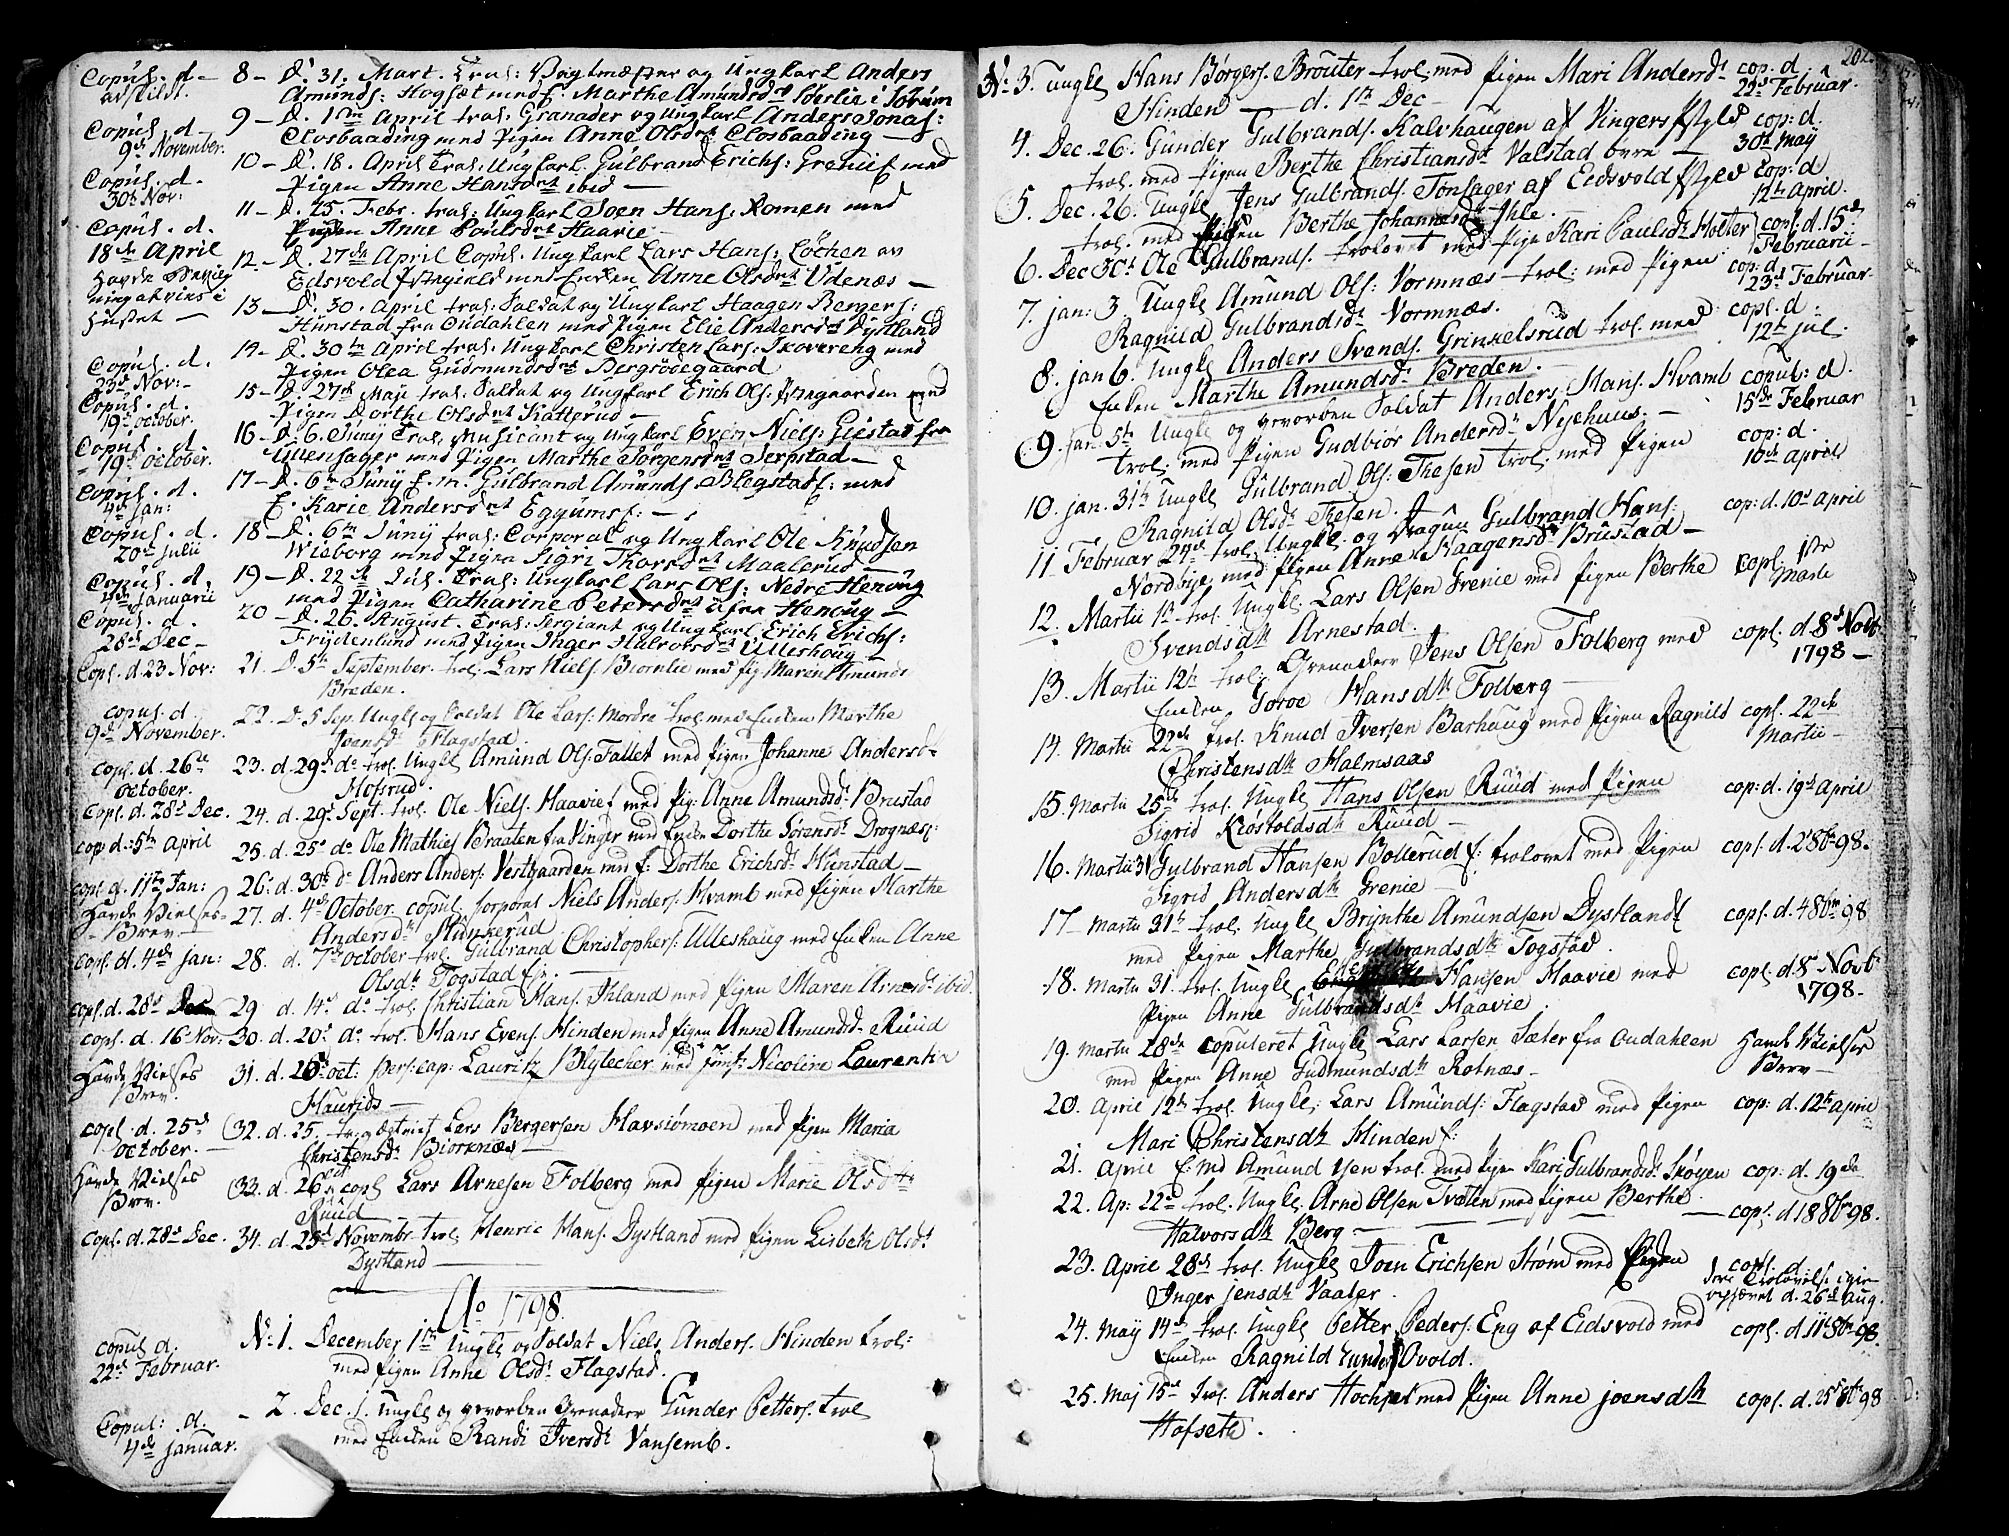 Copul. d. 8 – D. 31. Mart. Trol: Vagtmester og Ungkarl Anders
Amunds: Hogsæt med f. Marthe Amundsdat
Copul. d. 9 – D. 1 April trol: Granader og Ungkarl Anders Jonas:
9de November. Closbaading med Pigen Anne Olsdat Closbaading –
Copul. d. 10 – D. 18. April Trol: Ungkarl Gulbrand Erichs: Grenies med
30t Nov: Pigen Anne Hansdat ibid –
Copul. d. 11 – D. 25. Febr. trol: Ungkarl Joen Hans: Romen med
18de April Pigen Anne Poulsdat Haavie –
Havde Bevilgning at vies i Huset – 12 – D. 27de April Copul. Ungkarl Lars Hans: Løchen av
Eidsvold Præstegield med Enken Anne Olsdat Udenæs –
13 – D. 30. April trol: Soldat og Ungkarl Haagen Bergers:
Hunstad fra Oudahlen med Pigen Elie Andersdat Dystland
Copul. d. 14 – D. 30te April trol: Ungkarl Christen Lars: Skovereng med
23d Nov: – Pigen Olea Gudmundsdat Bergsødegaard
Copul. d. 15 – D. 27de Maji trol: Soldat og Ungkarl Erich Ols: med
19de october. Pigen Dorthe Olsdat Katterud –
Copul. d. 16 – D. 6. Junij Trol. Musicant og Ungkarl Even Niels: Giestad fra
19de october. Ullensager med Pigen Marthe Jørgensdat Serpstad –
Copul. d. 17 – D. 6te Junij E. m. Gulbrand Amunds. Blegstad: med
4de Jan: E. Karie Andersdat Eggum –
Copul. d. 18 – D. 6te Junij trol: Corporal og Ungkarl Ole Knudsen
20de Julii Wieborg med Pigen Sigri Thorsdat Maalerud –
Copul. d. 19 – D. 22de Jul. Trol: Ungkarl Lars Ols: Nedre Henoug
4de Januarii med Pigen Catharine Petersdat Henoug –
Copul. d. 20 – D. 26. August. Trol: Sergiant og Ungkarl Erich Erichs:
28de Dec – Frydenlund med Pigen Inger Halvorsdat Ulleshoug –
Copl. d. 23 Nov: 21. D. 5te September. trol. Lars Niels. Biørnlie med Pig Maren Amunds
Breden.
copul. d. 22. D. 5 Sep. Ungk. og Soldat Ole Lars: Mordre trol. med Enken Marthe
9de November. Joensdr Flagstad
copl. d. 26de october. 23. d. 29de do trol. Ungk. Amund Ols: Fallet med Pigen Johanne Andersdr
Hofsrud.
Copl. d. 28de Dec. 24. d. 29de Sept. trol. Ole Niels. Haavie med Pig: Anne Amundsdr Brustad
cop d. 5te April 25. d. 25de do Ole Mathies Braaten fra Vinger med Enken Dorthe Sørensdr Drognæs:
copl. d. 11te Jan: 26. d. 30te do Anders Anders. Vestgaarden med f: Dorthe Erichsdr Hunstad –
Havde Vielses- 27. d. 4de October copul. Corporal Niels Anders. Hvamb med Pigen Marthe
Brev – Andersdr Munkerud
copl. d. 4de Jan: 28. d. 7de October trol. Gulbrand Christophers: Ulleshaug med Enken Anne
Olsdr Togstad
copl. d. 28de Dec 29 d. 14de do trol. Christian Hans. Ihland med Pigen Maren Arnesdr ibid.
copl. d. 16 Nov: 30. d. 20de do trol. Hans Evens. Hinden med Pigen Anne Amundsdr Ruud
Havde Vielses 31. d. 25 oct: Pers: cap: Lauritz Blytecher med Jomfr Nicoline Laurentia
Brev. Haurids –
copl. d. 25de october. – 32. d. 25. Lars Bergersen Havsiømoen med Pigen Maria
Christensdr Biørknæs –
Havde Vielses 33. d. 26 oct copl Lars Arnesen Folberg med Pigen Marie Olsdtr
Brev. Ruud
copl. d. 28de Dec. 34. d. 25de Novembr trol Henric Hans. Dystland med Pigen Lisbeth Olsdr
Dystland –
Ao 1798.
copul d. No 1. December 1te Ungk. og Soldat Niels Anders. Hinden trol:
22de Februar. med Pigen Anne Olsdr Flagstad.
Copul: d. – 2. Dec. 1. Ungk. og gevorben Grenadeer Gunder Petters. trol
4de Januar. med Enken Randi Iversdr Vansemb.
202.
No. 3. Ungk. Hans Børgers. Brøuter trol. med Pigen Mari Andersdr cop. d.
Hinden – d. 1te Dec – 22de Februar.
4. Dec. 26. Gunder Gulbrands. Kalvhaugen af Vingers Pgield cop: d.
trol. med Pigen Berthe Christiansdr Valstad øvre – 30te May
5. Dec. 26. Ungk. Jens Gulbrands. Tonsager af Eidsvold Pgield cop: d.
trol. med Pigen Berthe Johannesdr Ihle. 12te April.
6. Dec 30t Ole Gulbrands. trolovet med Pige Kari Paulsdr Holter copl. d. 15de Februarii –
7. jan: 3. Ungk. Amund Ols: Vormnæs – trol: med Pigen cop: d.
Ragnild Gulbrandsdr Vormnæs. 23d Februar.
8. jan 6. Ungk. Anders Svends. Grinkelsrud trol. med copl. d.
Enken Marthe Amundsdr Breden. 12te jul.
9. jan. 5te Ungk. og gevorben Soldat Anders Hans. Hvamb copul: d.
trol: med Pigen Gudbiør Andersdr Nyehuus. – 15de Februar
10. jan. 31te Ungk. Gulbrand Ols: Thesen trol: med Pigen cop: d.
Ragnild Olsdr Thesen. 10de April
11. Februar 24de trol. Ungk. og Dragun Gulbrand Hans: cop: d. 10de April
Nordbye med Pigen Anne Haagensdr Brustad –
12. Martii 1te trol. Ungk. Lars Olsen Grenie med Pigen Berthe Copl. 1ste
Svendsdtr Arnestad. Martii
13. Martii 12te trol. Grenadeer Jens Olsen Folberg med copl. d. 8de Novbr
Enken Goroe Hansdtr Folberg – 1798 –
14. Martii 22de trol. Knud Iversen Barhaug med Pigen Ragnild copl. 22de
Christensdtr Halmsaas Martii –
15. Martii 25de trol. Ungk. Hans Olsen Ruud med Pigen cop: d. 19de April
Sigrid Kiøstoldsdtr Ruud –
16. Martii 31 Gulbrand Hansen Bollerud trolovet med Pigen copl. d. 28br 98.
Sigrid Andersdtr Grenie –
17 – Martii 31te trol. Ungk. Brynthe Amundsen Dystland copl. d. 48br 98
med Pigen Marthe Gulbrandsdtr Togstad.
18. Martii 31. trol. Ungk. Hansen Haavie med copl. d. 8de Novbr
Pigen Anne Gulbrandsdtr Haavie. 1798 –
19. Martii 28de copuleret Ungk. Lars Larsen Sæter fra Oudahlen Havde Vielses
med Pigen Anne Gudmundsdtr Rotnæs – Brev –
20. April 12te trol. Ungk. Lars Amunds: Flagstad med Pigen cop: d. 12te April
Mari Christensdtr Hinden
21. April E. md Amund trol. med Pigen Kari Gulbrandsdr Skøyen cop: d. 19de
22. Ap: 22de trol. Ungk. Arne Olsen Tveten med Pigen Berthe copl. d. 188br 98.
Halvorsdtr Berg –
23. April 28de trol. Ungk. Joen Erichsen Strøm med Pigen copl. d.
Inger Jensdtr Vaaler. Trolovelse igien ophævet d. 26de Aug.
24. Maij 14de trol. Ungk. Petter Peders. Eng af Eidsvold med copl. d. 11te 8br 98
Enken Ragnild Gunders Ovold.
25. Maj 15de trol. Anders Hochset med Pigen Anne Joensdtr copl. d. 25de 8br 98
Hofseth.